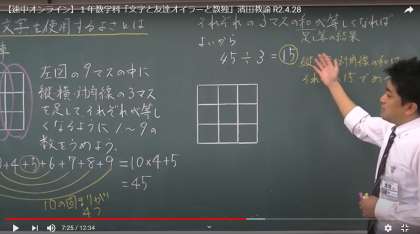 【速中オンライン】１年数学科「文字と友達オイラーと数独」濱田教諭 R2.4.28
文字を使用するよさとは
左図の9マスの中に
縦・横・対角線の3マス
を足してそれぞれ等し
くなるように1〜9の
数をうめよう。
+4+5+6+7+8+9=10×4+5
=45
10の
4つ
それぞれ3マスの和が等しくなれば
よいから
45÷3=15
対角線の和は
それぞれ15
7:25 / 12:34